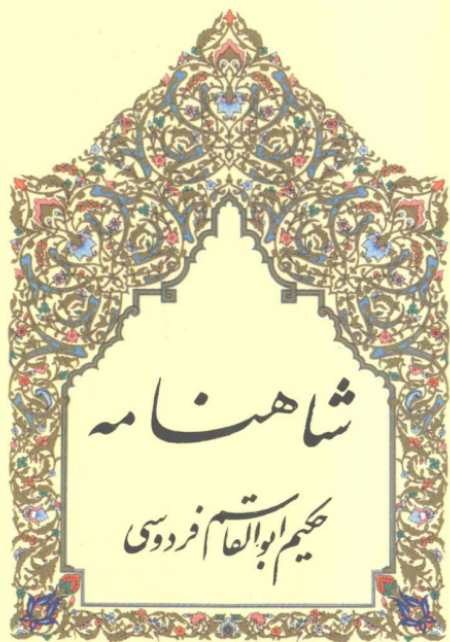 شاهنامه
حکیم ابوالقاسم فردوسی